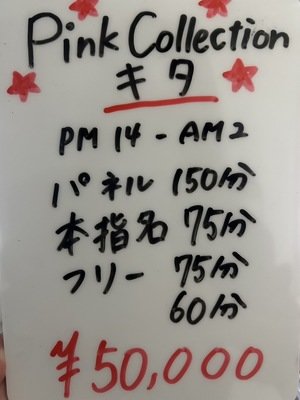 Pink Collection
キタ
PM 14 - AM 2
パネル 150分
本指名 75分
フリー 75分
60分
¥50,000